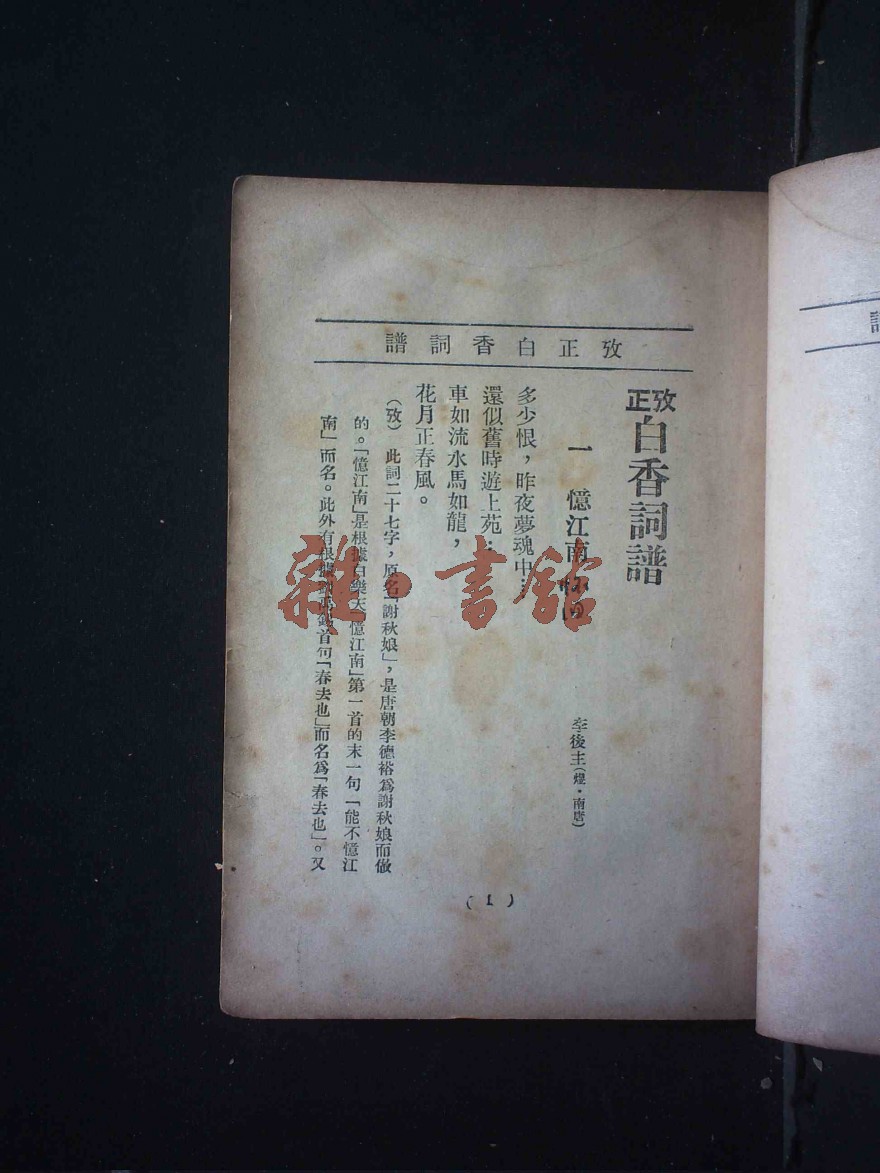 攷正白香詞譜
攷正白香詞譜
一 憶江南 懷舊 李後主(煜·南唐)
多少恨,昨夜夢魂中:
還似舊時遊上苑;
車如流水馬如龍,
花月正春風。
(攷) 此詞二十七字,原名「謝秋娘」,是唐朝李德裕爲謝秋娘而做
的。「憶江南」是根據白樂天「憶江南」第一首的末一句「能不憶江
南」而名。此外有根據劉禹錫首句「春去也」而名爲「春去也」。又
(1)
雜·書館